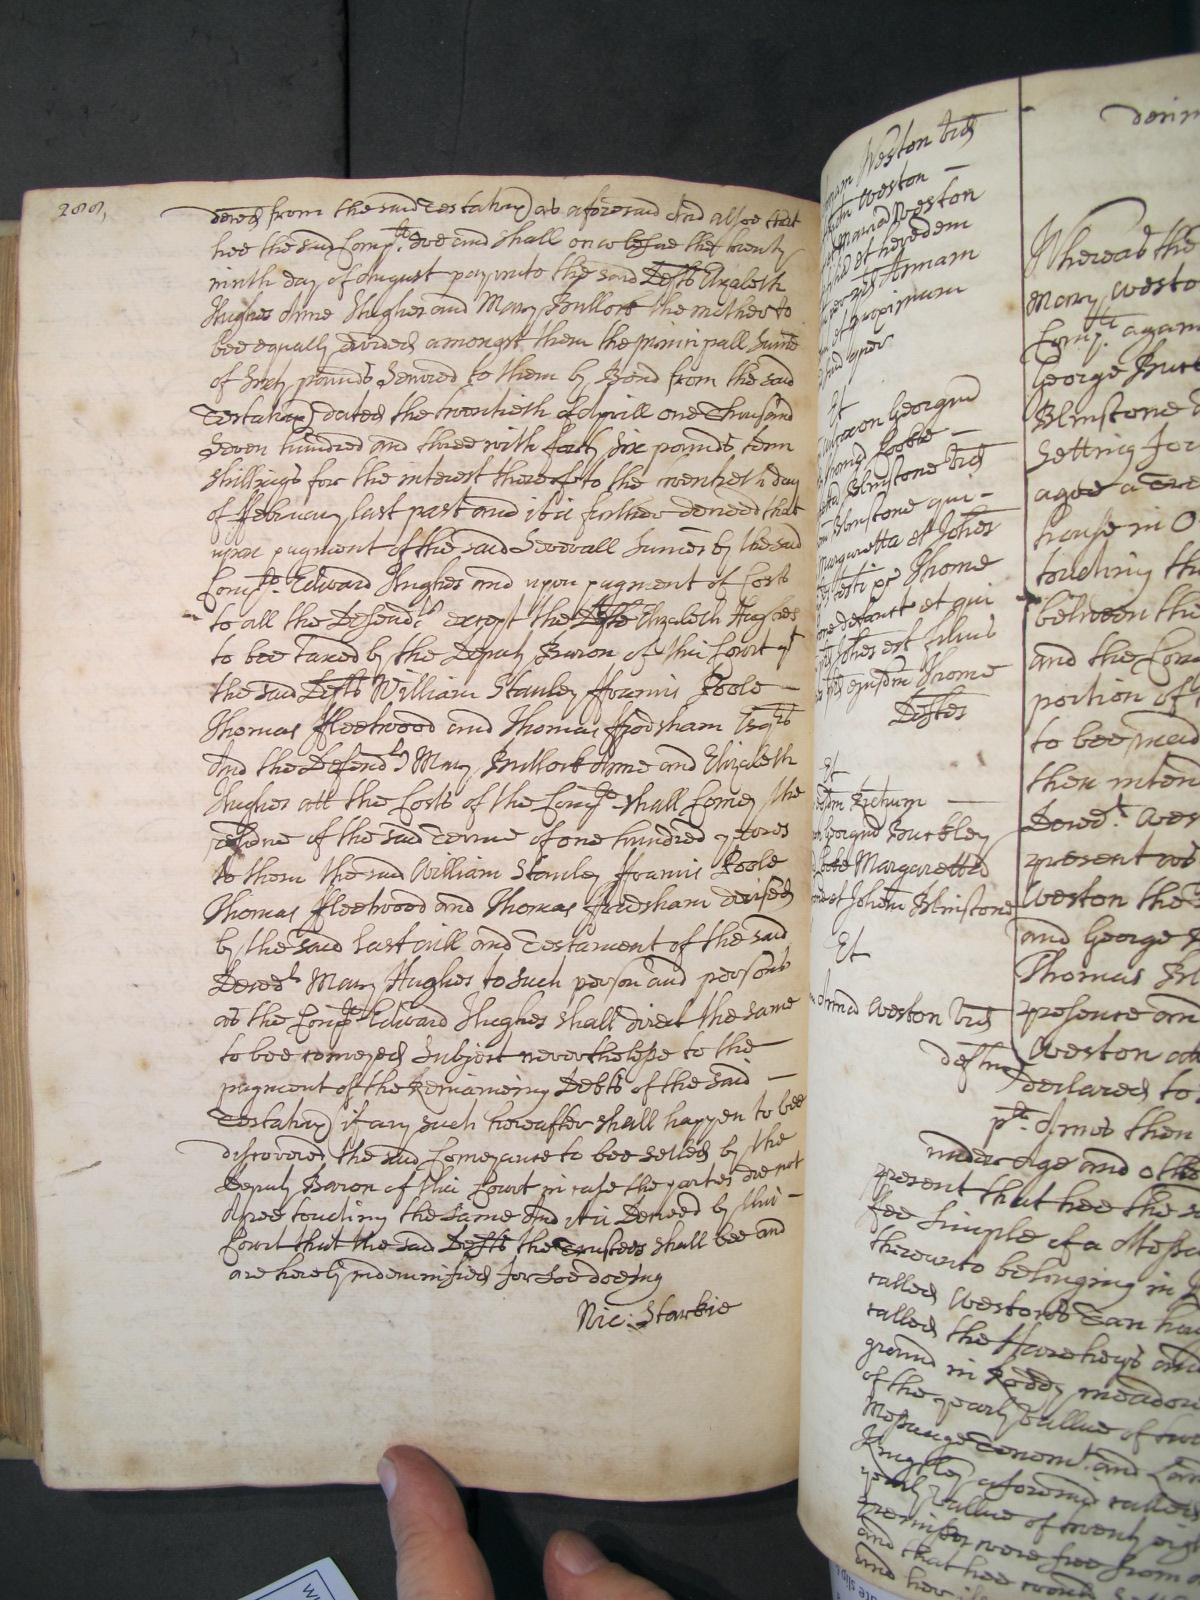 288,
dered from the said Testatrix as aforesaid And alsoe that
hee the said Comp.lt doe and shall on or before the twenty
ninth day of August pay unto the said Defts Elizabeth
Hughes Anne Hughes and Mary Bullock the mother to
bee equally devided amongst them the principall Sume
of Sixty pounds Secured to them by Bond from the said
Testatrix dated the twentieth of Aprill one Thousand
Seven hundred and three with forty Six pounds tenn
shillings for the interest thereof to the twentieth day
of ffebruary last past and it is further decreed that
upon payment of the said Severall Sumes by the said
Comp.lt Edward Hughes and upon payment of Costs
to all the Defend.ts except the Defts Elizabeth Hughes
to bee Taxed by the Deputy Baron of this Court yt
the said Defts William Stanley ffrancis Poole —
Thomas ffleetwood and Thomas ffrodsham Esqrs
And the Defend.ts Mary Bullock Anne and Elizabeth
Hughes att the Costs of the Comp.lt shall Convey the
residue of the said Terme of one hundred yeares
to them the said William Stanley ffrancis Poole
Thomas ffleetwood and Thomas ffrodsham devised
by the said last will and Testament of the said
Deced.t Mary Hughes to such person and persons
as the Comp.lt Edward Hughes shall direct the same
to bee conveyed Subject neverthelesse to the —
payment of the Remaineing Debts of the said —
Testatrix if any such hereafter shall happen to bee
discovered the said Conveyance to bee setled by the
Deputy Baron of this Court in case the parties doe not
Agree touching the same And it is Decreed by this —
Court that the said Defts the Trustees shall bee and
are hereby indemnified for soe doeing
Nic: Starkie
Weston vid
Weston —
Maria Weston
et heredem
Annam
et proximum
Et
Georgiud
Poole —
Blinstone vid
Blinstone qui —
Margaretta et Johes
testi pr Thome
defunct et qui
Johes est filius
ejusdm Thome
Deftes
Et
—
Georgiud Buckley
Margaretta
et Johem Blinstone
Et
Anna Weston vid
deftm
Whereas the
Mary Westo
Comp.lt again
George Buck
Blinstone
Setting for
agoe a Trea
house in O
touching the
between the
and the Com
portion of
to bee made
then inten
Deced.t Wes
present as
Weston the
and George
Thomas Bli
presence an
Weston
declared to
Amos then
under age and othe
present that hee the s
fee simple of a Messu
thereunto belonging in
called Westons Tan hou
called the Hareheys and
ground in meadow
of the yearly vallue of
Messuage Tenem.t and Lan
Kingsley aforesaid called
yearly vallue of twenty eigh
premisses were free from
and that hee would
and her